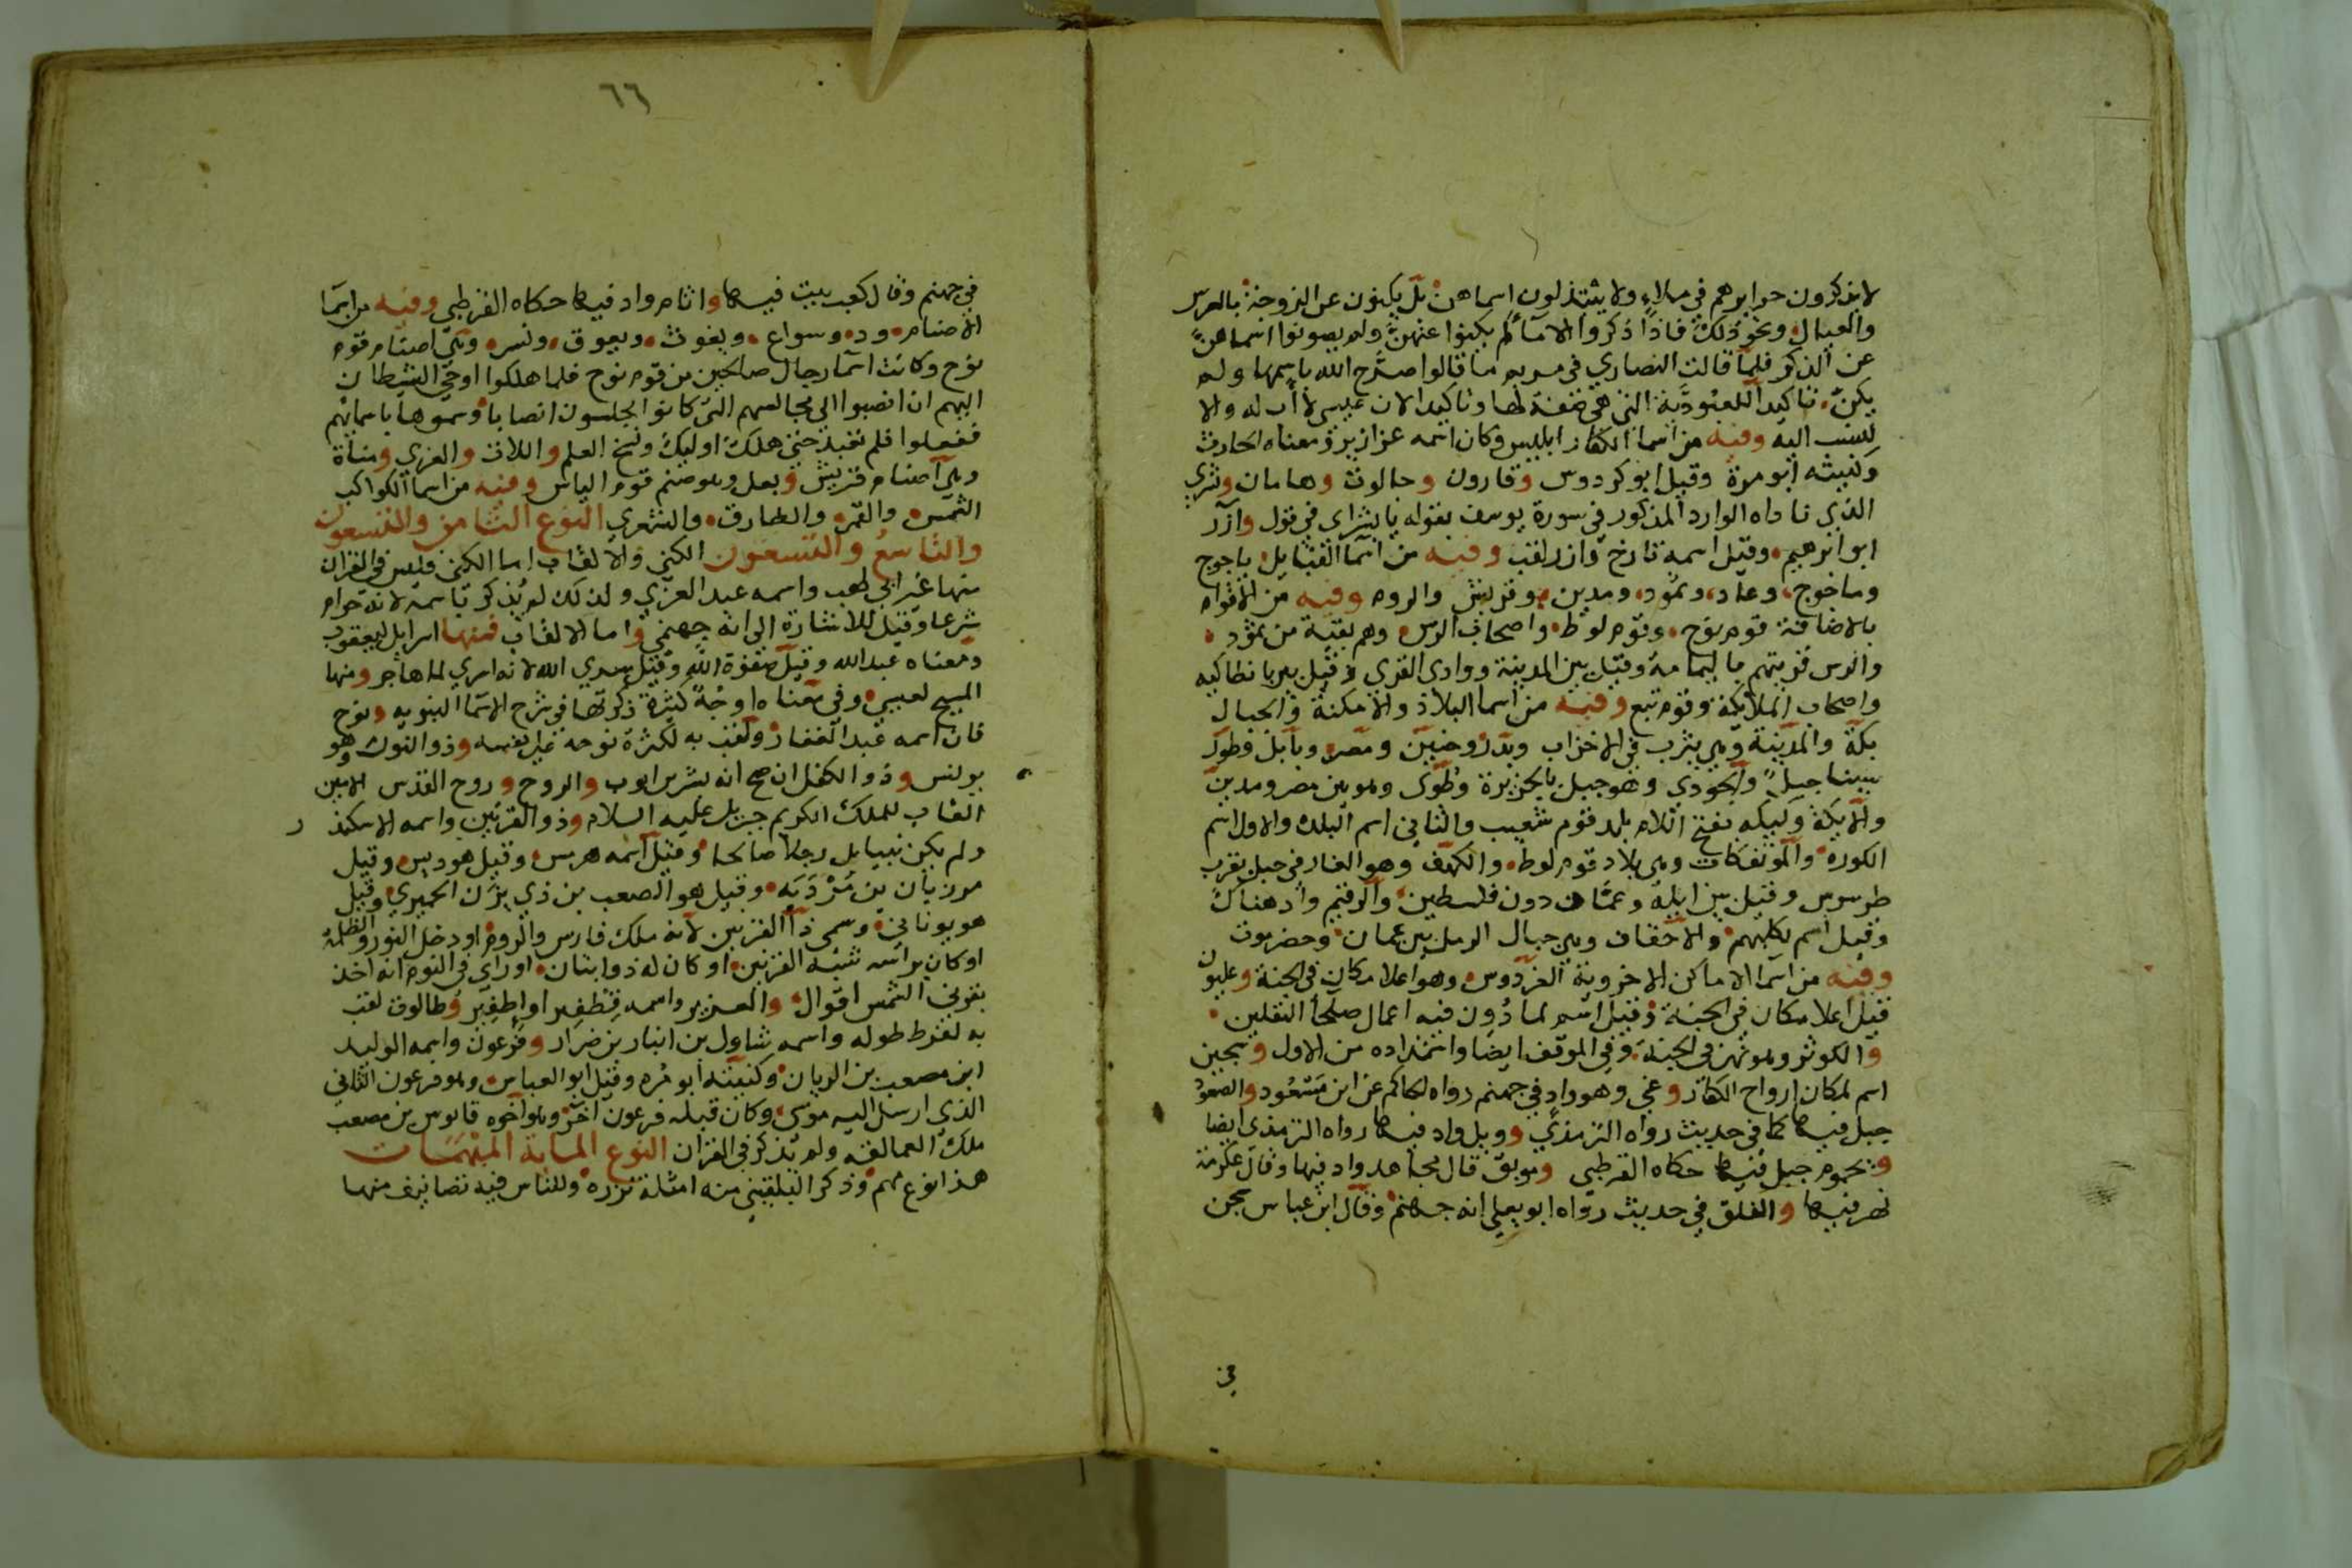 لا يذكرون حرايرهم في ملاء ولا يبتذلون اسماهن بل يكنون عن الزوجة بالعرس
والعيال ونحو ذلك فاذا ذكروا الاماء لم يكنوا عنهن ولم يصونوا اسماهن
عن الذكر فلما قالت النصاري في مريم ما قالوا صرح الله باسمها ولم
يكن تاكيدا للعبودية التي هي صفة لها وتاكيدا لان عيسي لا اب له والا
لنسب اليه وفيه من اسما الكفار ابليس وكان اسمه عزازيل ومعناه الحارث
وكنيته ابو مرة وقيل ابو كردوس وقارون وجالوت وهامان وبشري
الذي ناداه الوارد المذكور في سورة يوسف بقوله يا بشراي في قول وآزر
ابو ابرهيم وقيل اسمه تارخ وازر لقب وفيه من اسما القبايل ياجوج
وماجوج وعاد وثمود ومدين وقريش والروم وفيه من الاقوام
بالاضافة قوم نوح وقوم لوط واصحاب الرس وهم بقية من ثمود
والرس قريتهم باليمامة وقيل بين المدينة ووادي القري وقيل بير بانطاكيه
واصحاب الملايكة وقوم تبع وفيه من اسما البلاد والامكنة والجبال
بكة والمدينة وهي يثرب في الاحزاب وبدر وحنين ومصر وبابل وطور
سينا جبل والجودي وهو جبل بالجزيرة وطوي وهو بين مصر ومدين
والايكة وليكه بفتح اللام بلد قوم شعيب والثاني اسم البلده والاول اسم
الكوره والموتفكات وهي بلاد قوم لوط والكهف وهو الغار في جبل بقرب
طرسوس وقيل بين ايلة وعمان دون فلسطين والرقيم واد هناك
وقيل اسم لكلبهم والاحقاف وهي جبال الرمل بين عمان وحضرموت
وفيه من اسما الاماكن الاخروية الفردوس وهو اعلا مكان في الجنة وعليون
قيل اعلا مكان في الجنة وقيل اسم لما دون فيه اعمال صلحا الثقلين
والكوثر وهو نهر في الجنة وفي الموقف ايضا واستمداده من الاول وسجين
اسم لمكان ارواح الكفار وغي وهو واد في جهنم رواه الحاكم عن ابن مسعود والصعود
جبل فيها كما في حديث رواه الترمذي وويل واد فيها رواه الترمذي ايضا
ويحموم جبل فيها حكاه القرطبي وموبق قال مجاهد واد فيها وقال عكرمة
نهر فيها والفلق في حديث رواه ابو يعلي انه جهنم وقال ابن عباس سجن
في
٦٦
في جهنم وقال كعب بيت فيها واثام واد فيها حكاه القرطبي وفيه من اسما
الاصنام ود وسواع ويغوث ويعوق ونسر وهي اصنام قوم
نوح وكانت اسما رجال صالحين من قوم نوح فلما هلكوا اوحي الشيطان
اليهم ان انصبوا الي مجالسهم التي كانوا يجلسون انصابا وسموها باسمائهم
ففعلوا فلم تعبد حتي هلك اوليك ونسخ العلم واللات والعزي ومناة
وهي اصنام قريش وبعل وهو صنم قوم الياس وفيه من اسما الكواكب
الشمس والقمر والطارق والشعري النوع الثامن والتسعون
والتاسع والتسعون الكني والالقاب اما الكني فليس في القران
منها غير ابي لهب واسمه عبد العزي ولذلك لم يذكر باسمه لانه حرام
شرعا وقيل للاشارة الي انه جهنمي واما الالقاب فمنها اسرايل ليعقوب
ومعناه عبد الله وقيل صفوة الله وقيل سري الله لانه اسري لما هاجر ومنها
المسيح لعيسي وفي معناه اوجه كثيرة ذكرتها في شرح الاسما النبويه ونوح
فان اسمه عبد الغفار ولقب به لكثرة نوحه علي نفسه وذو النون وهو
يونس وذو الكفل ان صح انه بشر بن ايوب والروح وروح القدس الامين
القاب للملك الكريم جبريل عليه السلام وذو القرنين واسمه الاسكند ر
ولم يكن نبيا بل رجلا صالحا وقيل اسمه هرمس وقيل هوديس وقيل
مرزبان بن مردبه وقيل هو الصعب بن ذي يزن الحميري وقيل
هو يوناني وسمي ذا القرنين لانه ملك فارس والروم او دخل النور والظلمة
او كان براسه شبه القرنين او كان له ذوابتان او راي في النوم انه اخذ
بقرني الشمس اقوال والعزيز واسمه قطفير او اطفير وطالوت لقب
به لفرط طوله واسمه شاول بن انبار بن ضرار وفرعون واسمه الوليد
ابن مصعب بن الريان وكنيته ابو مره وقيل ابو العباس وهو فرعون الثاني
الذي ارسل اليه موسي وكان قبله فرعون اخر وهو اخوه قابوس بن مصعب
ملك العمالقه ولم يذكر في القران النوع الماية المبهمات
هذا نوع مهم وذكر البلقيني منه امثلة نزره وللناس فيه تصانيف منها